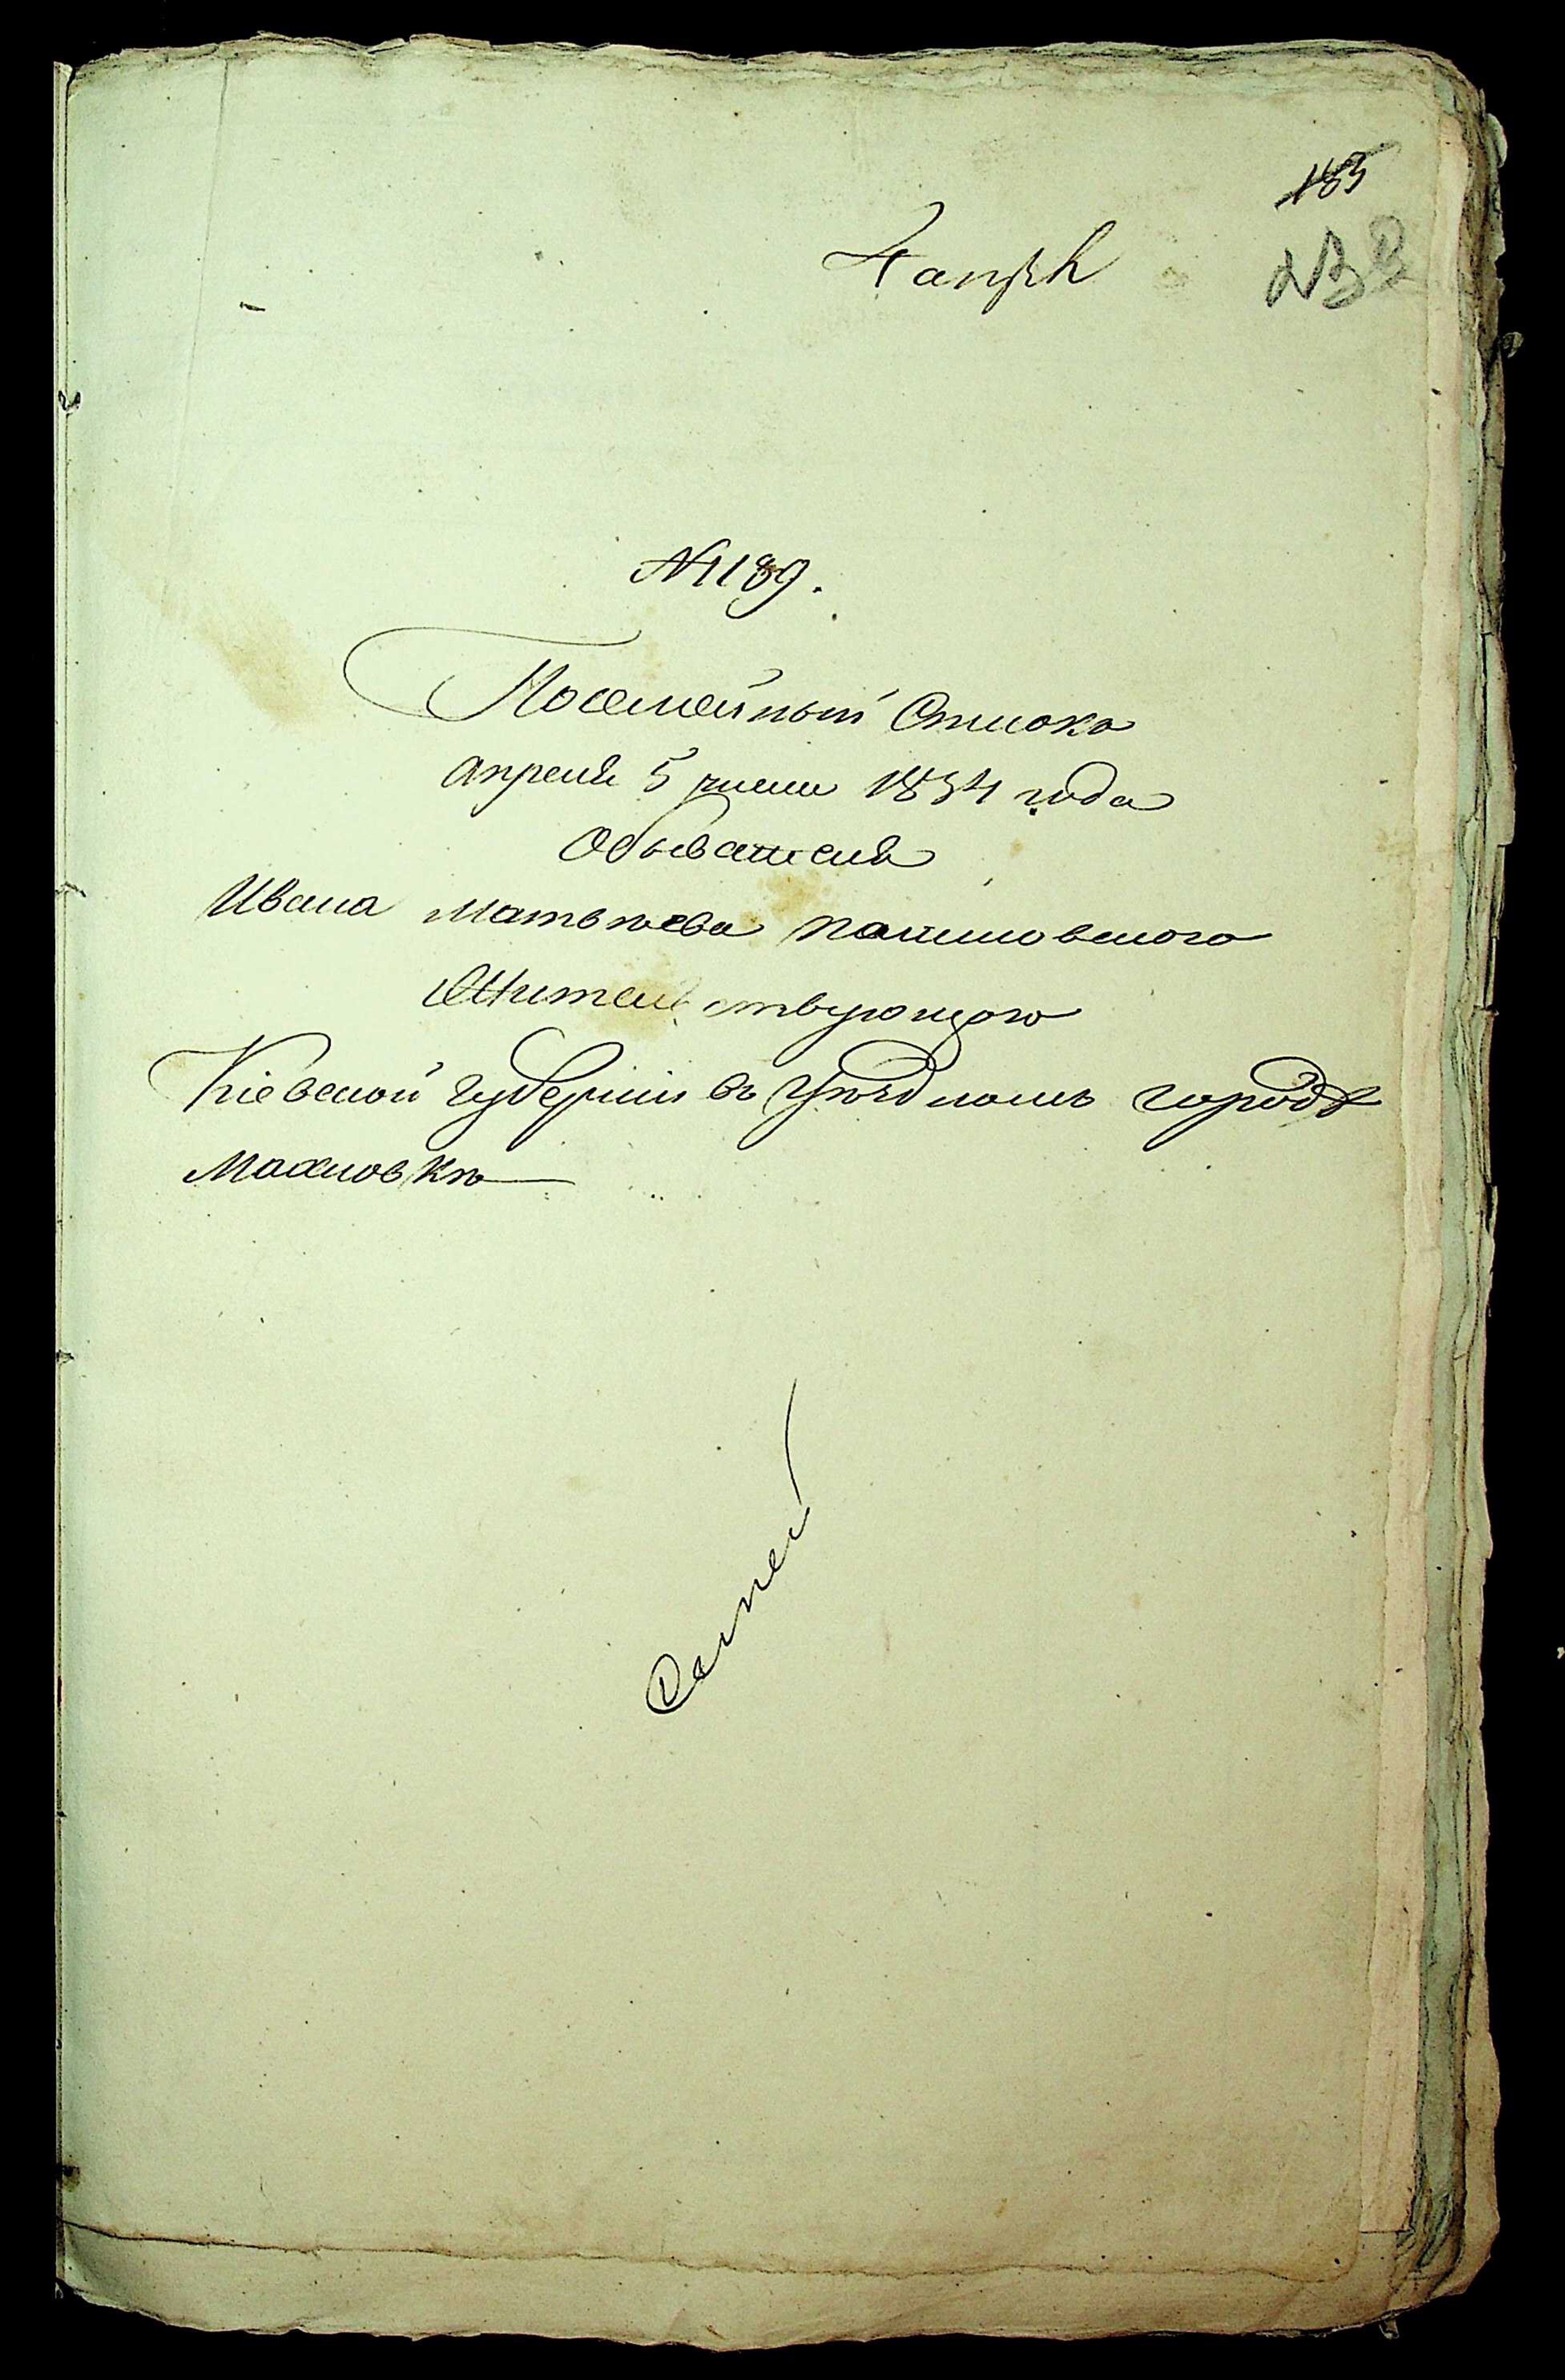 185
4 апрѣ
232
№1189.
Посемейный Списокъ
апреля 5 числа 1834 года
Обывателя
Ивана Матвѣева
Жительствующого
Кіевской губерніи въ уѣздномъ городѣ
Махновкѣ